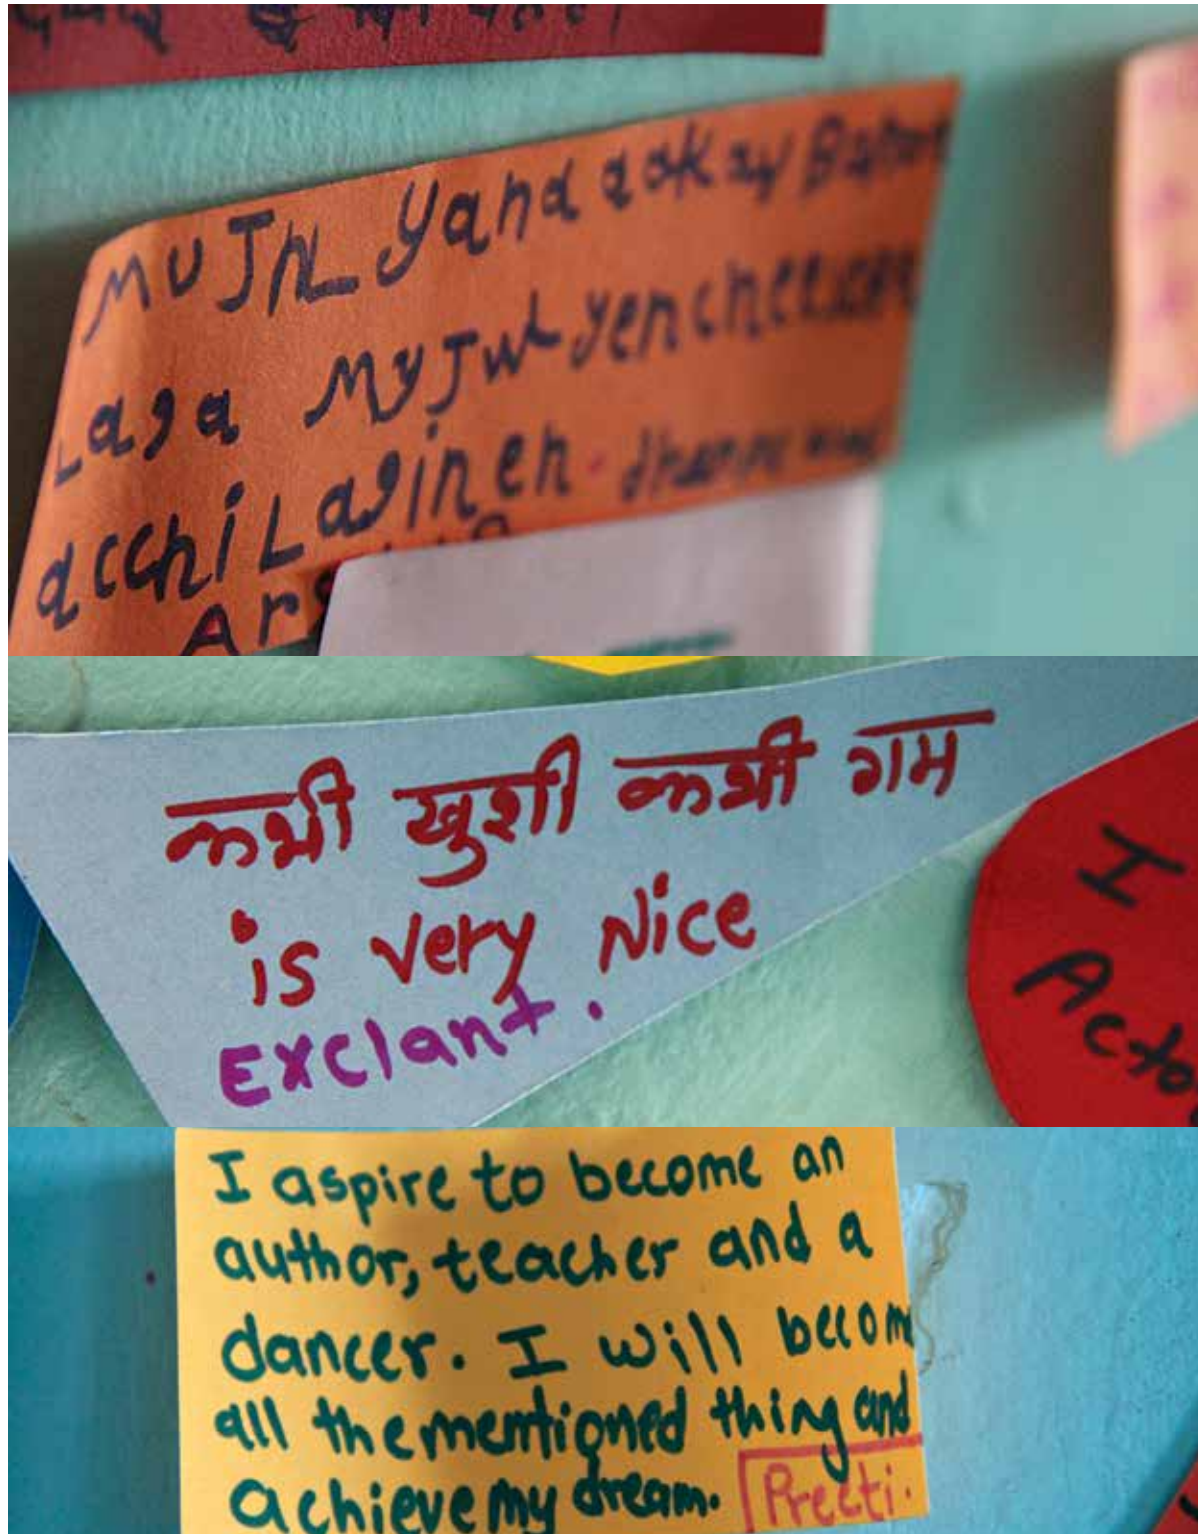 MUJhe Yaha aakay
Laga Mujhe yen cheexen
acchi Lagin eh.
कभी खुशी कभी गम
is very Nice
Exclant.
I
Acto
I aspire to become an
author, teacher and a
dancer. I will become
all the mentioned thing and
achieve my dream. Preeti.